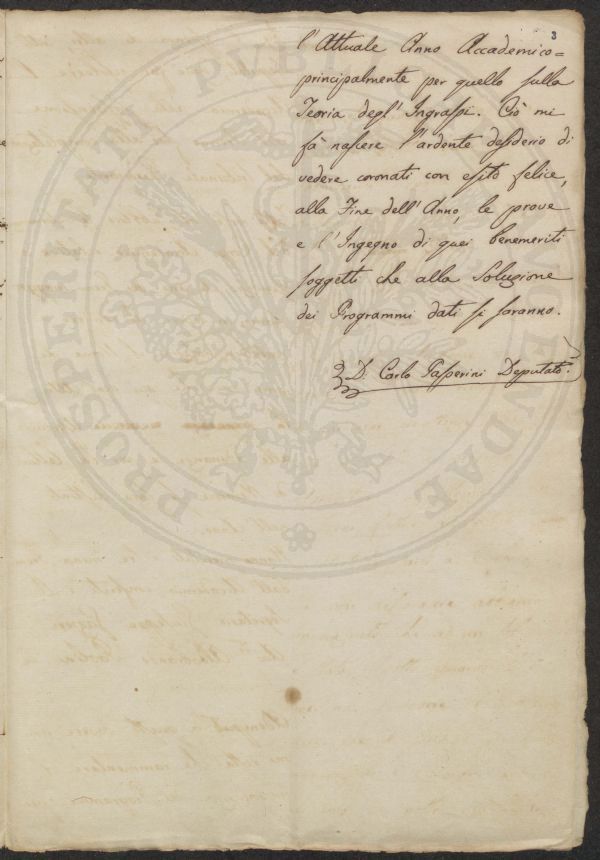 3
l'Attuale Anno Accademico=
principalmente per quello sulla
Teoria degl'Ingrassi. Ciò mi
fà nascere l'ardente desiderio di
vedere coronati con esito felice,
alla Fine dell'Anno, le prove
e l'Ingegno di quei benemeriti
soggetti che alla Soluzione
dei Programmi dati si saranno.
D. Carlo Passerini Deputato.
PROSPERITATI PUBLICAE AUGENDAE